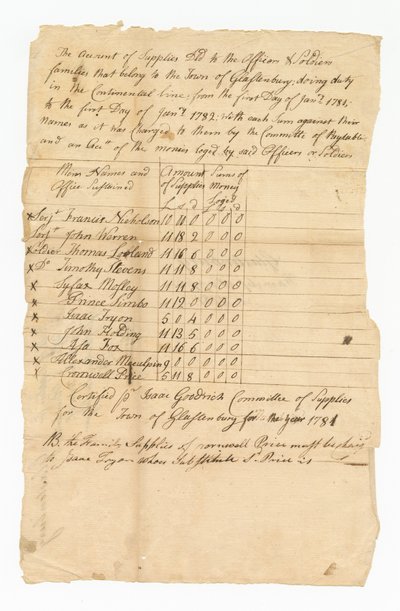 The Account of Supplies Dld to the Officers & Soldiers
families that belong to the Town of Glastenbury; doing duty
in the Continental Line; from the first Day of Janr. 1781;
to the first Day of Janr. 1782; with each Sum against their
Names as it was Charged to them by the Committee of Paytable
and an Acct. of the monies loged by said Officers or Soldiers
Mens Names and Amount Sums of
Office Sustained of Supplies Money
Loged
L s d L s d
x Serjt. Francis Nicholson 10 10 0 0 0 0
Serjt. John Warren 11 18 2 0 0 0
x Soldier Thomas Loveland 11 16 6 0 0 0
x Do. Timothy Stevens 11 11 8 0 0 0
x Syfax Mosley 11 11 8 0 0 0
x Prince Simbo 11 12 0 0 0 0
x Isaac Tryon 5 0 4 0 0 0
x John Holding 11 13 5 0 0 0
x Asa Fox 11 16 6 0 0 0
x Allexander 9 0 0 0 0 0
x Cromwell Price 5 11 8 0 0 0
Certified pr. Isaac Goodrich Committee of Supplies
for the Town of Glastenbury for the year 1781
NB. the Family Supplies of Price must be
to Isaac Tryon whose Substitute Sd. Price is